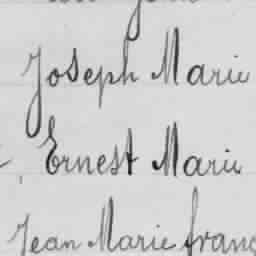 Joseph Marie
Ernest Marie
Jean Marie franç